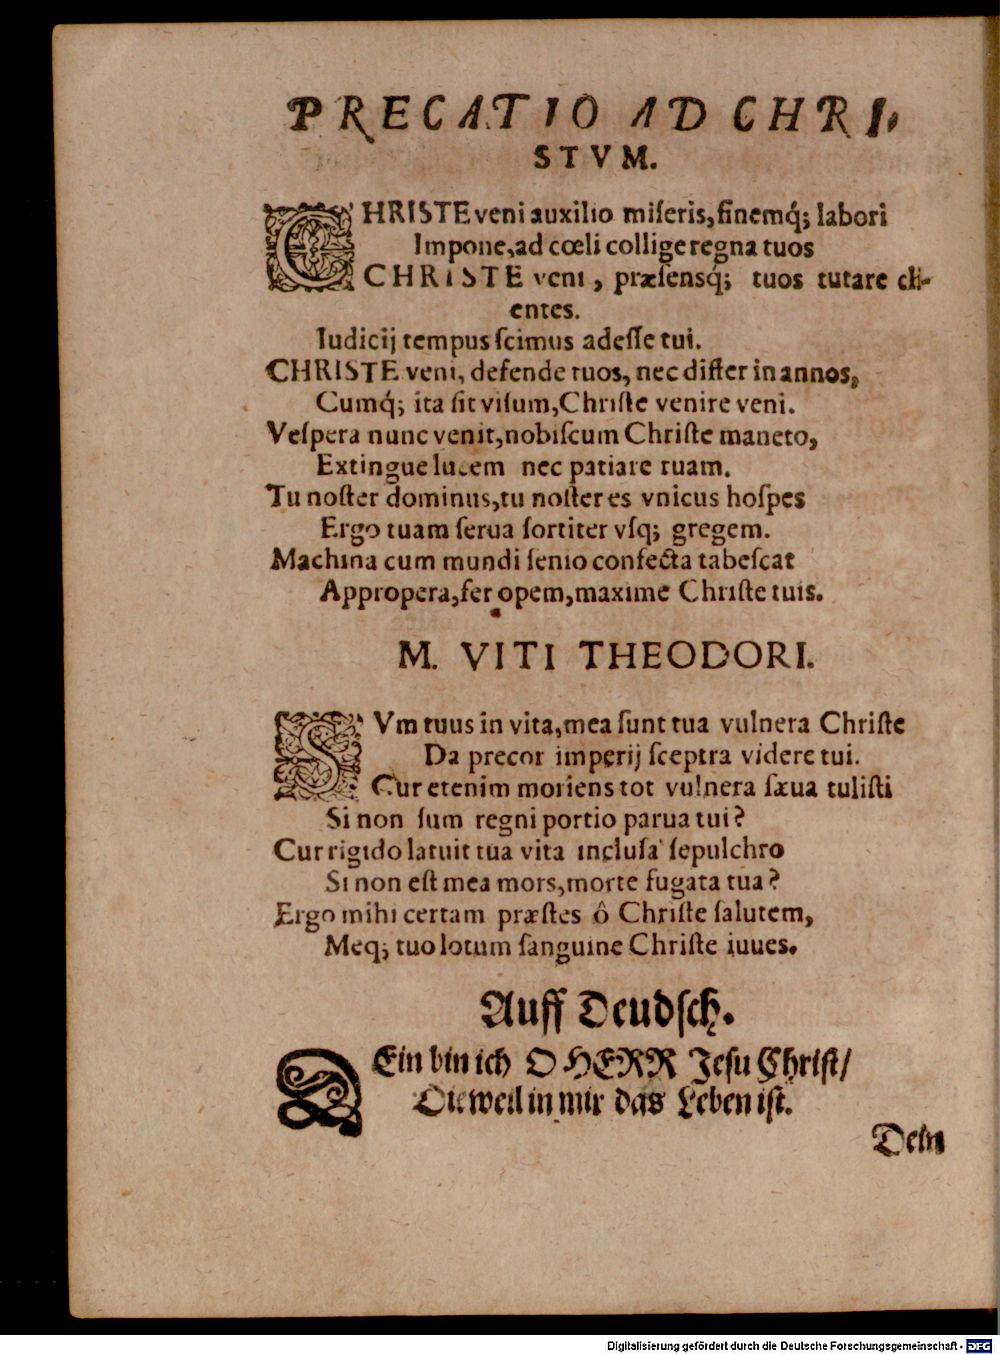 PRECATIO AD CHRI-
STVM.
CHRISTE veni auxilio miſeris, finemq́; labori
Impone, ad cœli collige regna tuos
CHRISTE veni, præſensq́; tuos tutare cli-
entes.
Iudicij tempus ſcimus adeſſe tui.
CHRISTE veni, defende tuos, nec differ in annos,
Cumq́; ita ſit viſum, Chriſte venire veni.
Veſpera nunc venit, nobiſcum Chriſte maneto,
Extingue lucem nec patiare tuam.
Tu noſter dominus, tu noſter es vnicus hoſpes
Ergo tuam ſerua fortiter vſq; gregem.
Machina cum mundi ſenio confecta tabeſcat
Appropera, fer opem, maxime Chriſte tuis.
M. VITI THEODORI.
SVm tuus in vita, mea ſunt tua vulnera Chriſte
Da precor imperij ſceptra videre tui.
Cur etenim moriens tot vulnera ſæua tuliſti
Si non ſum regni portio parua tui?
Cur rigido latuit tua vita incluſa ſepulchro
Si non eſt mea mors, morte fugata tua?
Ergo mihi certam præſtes ô Chriſte ſalutem,
Meq́; tuo lotum ſanguine Chriſte iuues.
Auff Deudſch.
DEin bin ich O HERR Jeſu Chriſt/
Dieweil in mir das Leben iſt.
Dein
Digitalisierung gefördert durch die Deutsche Forschungsgemeinschaft - DFG